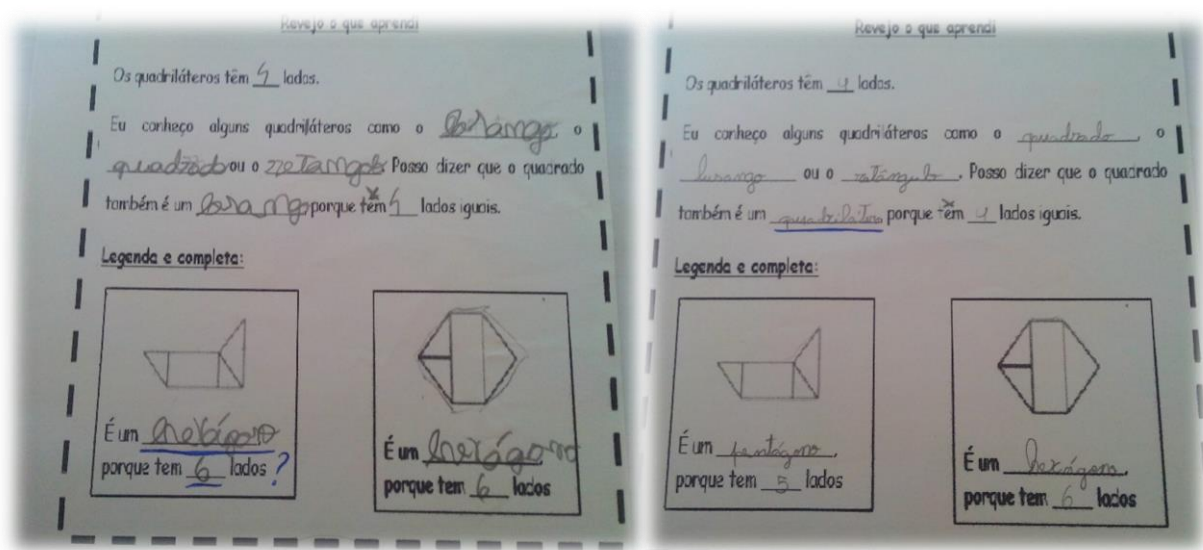 Revejo o que aprendi
Os quadriláteros têm 4 lados.
Eu conheço alguns quadriláteros como o losango, o
quadrado ou o retangolo. Posso dizer que o quadrado
também é um losango porque têm 4 lados iguais.
Legenda e completa:
É um
porque tem 6 lados ?
É um hexágono
porque tem 6 lados
Revejo o que aprendi
Os quadriláteros têm 4 lados.
Eu conheço alguns quadriláteros como o quadrado, o
lusango ou o retângulo. Posso dizer que o quadrado
também é um porque têm 4 lados iguais.
Legenda e completa:
É um pentágono,
porque tem 5 lados
É um hexágono,
porque tem 6 lados